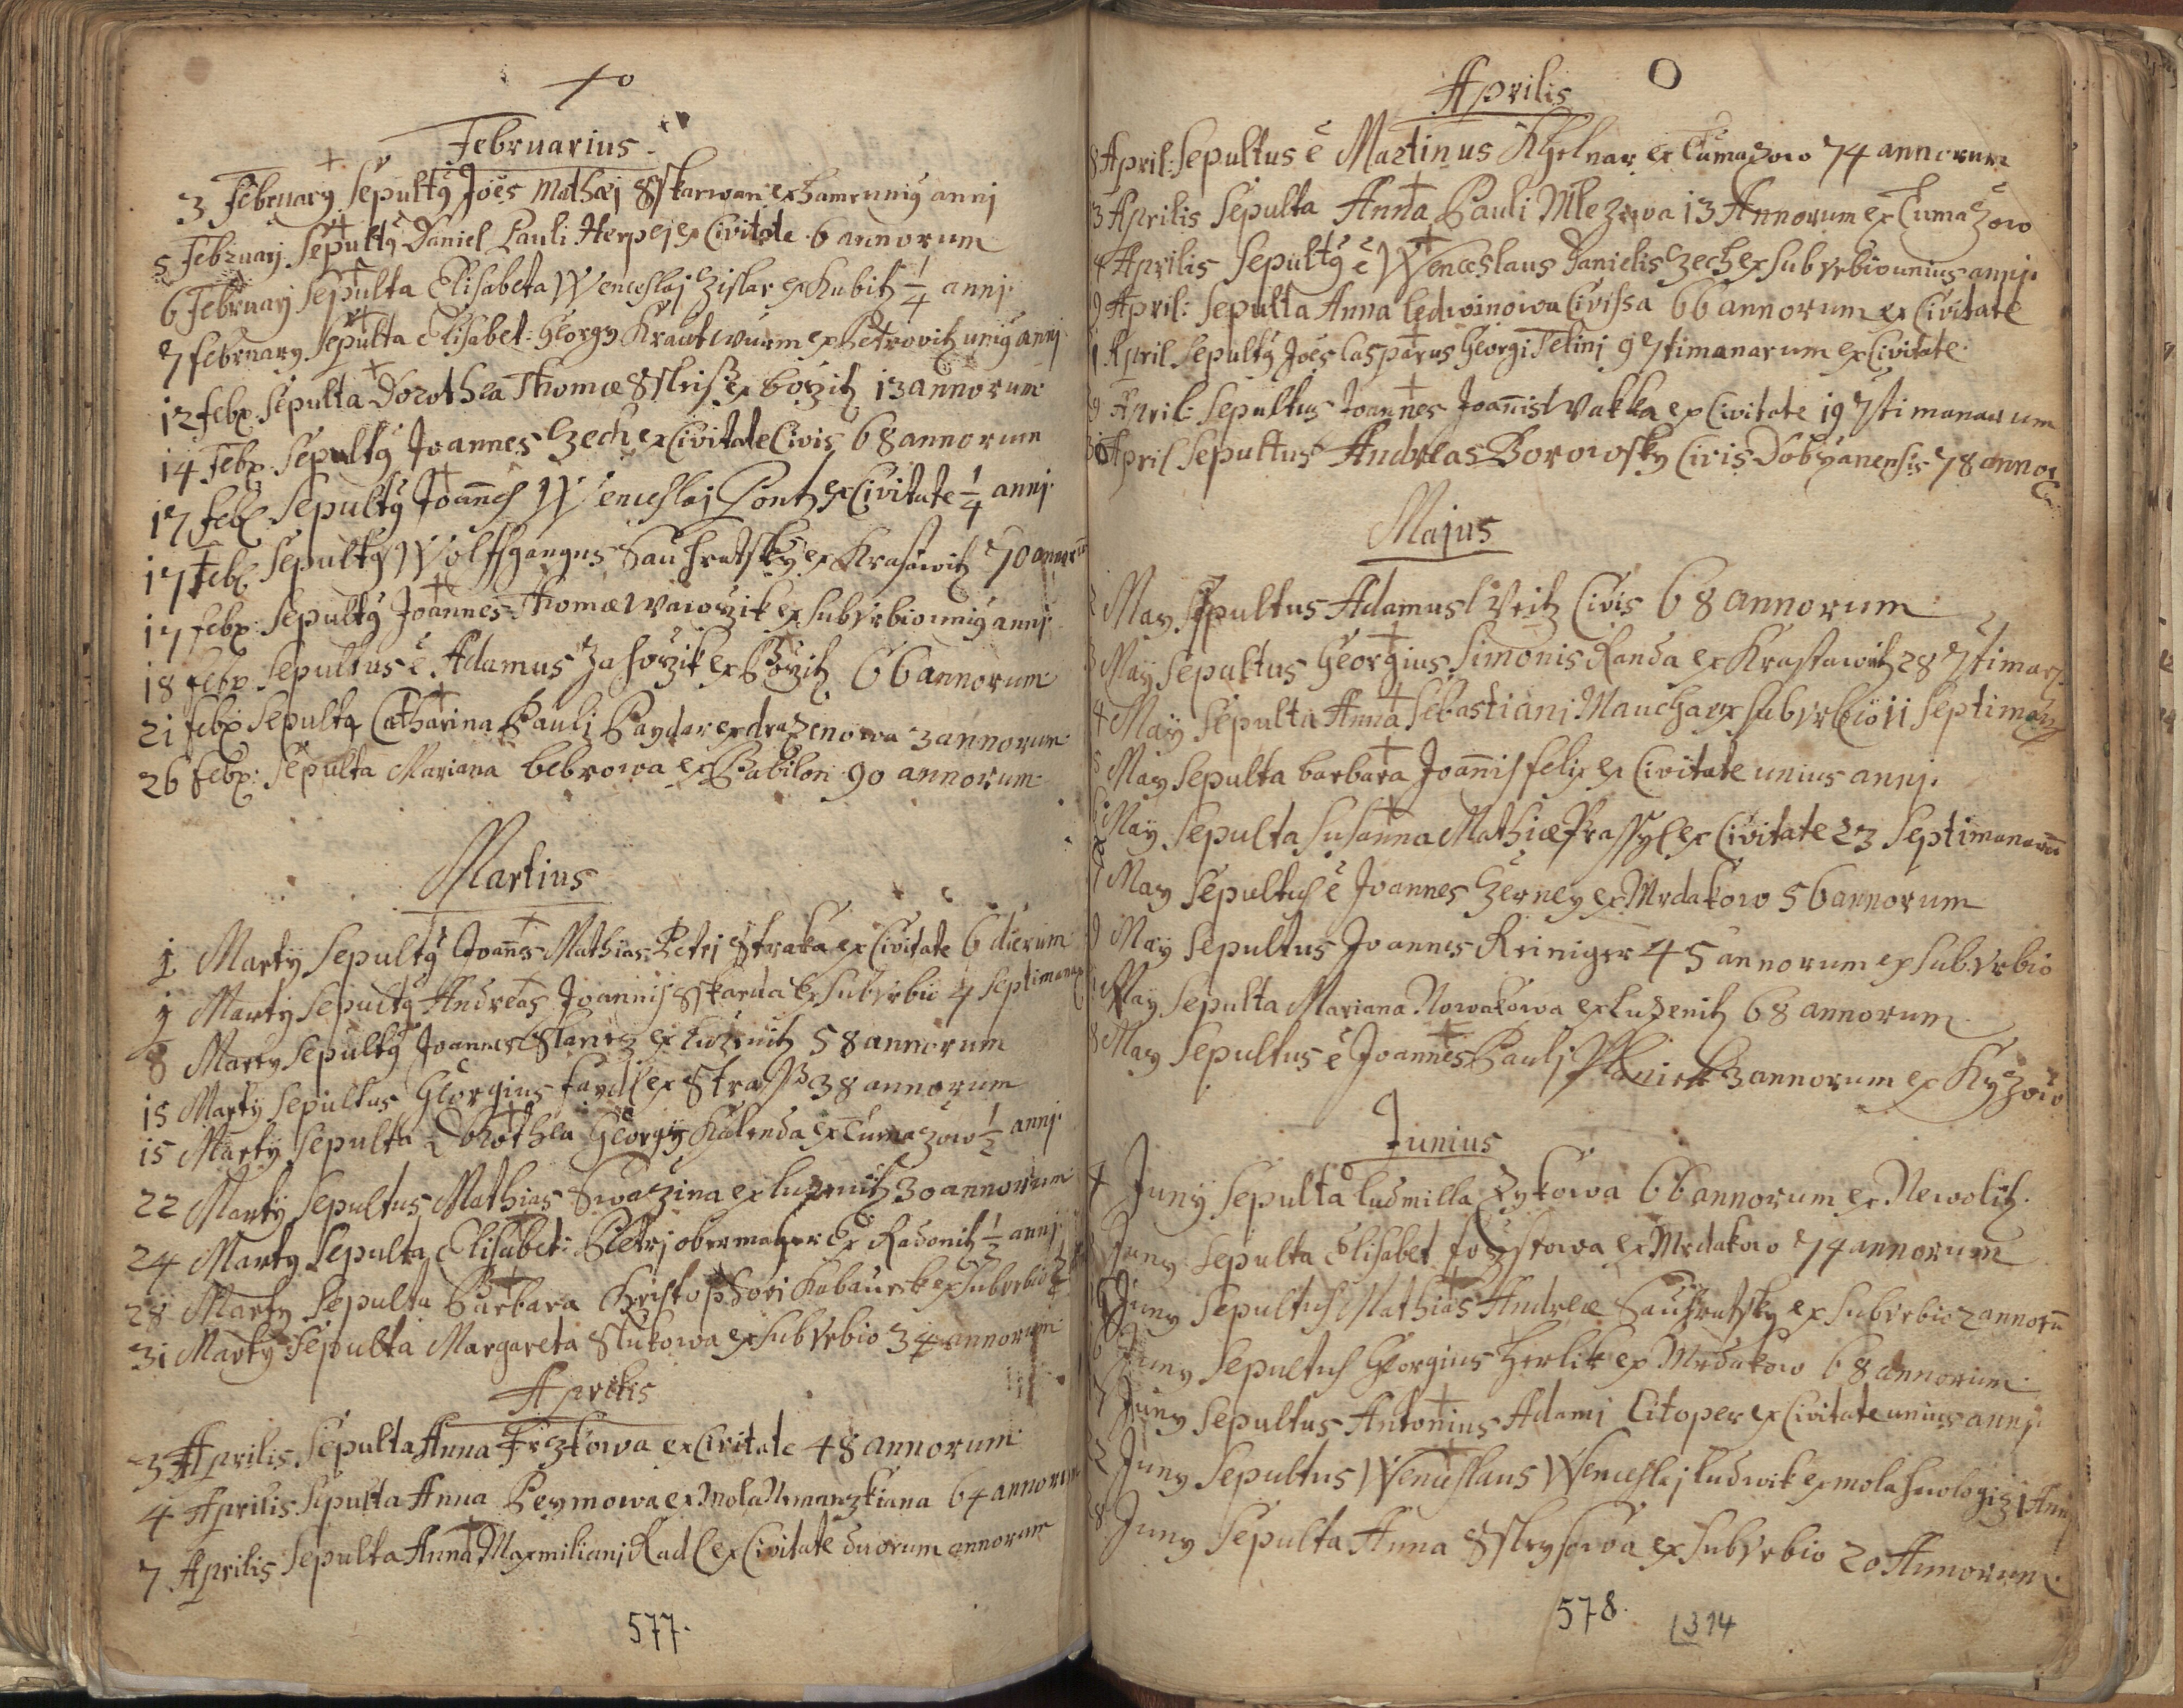 Februarius
3 February Sepultq Joës Mathæj Sskarwan ex hamr unius annj
5 February Sepultq Daniel Pauli Herpej ex Civitate 6 annorum
6 February Sepulta Elisabeta Wenceslaj Zislar ex Kubitz 1/4 annj
7 february Sepulta Elisabet: Georgy Krautwurm ex Petrovitz unig annj
12 febr. Sepulta Dorothea Thomæ Ssleiss ex bozitz 13 annorum
14 Febr. Sepultq Joannes Czech ex Civitate Civis 68 annorum
17 feb. Sepultq Joannes Wenceslaj Pontz ex Civitate 1/4 annj
17 Feb. Sepultq Wolffgangus Sauhratsky ex Krasawitz 70 annorū
17 febr. Sepultq Joannes Thomæ Wawrzik ex subvrbio unig annj
18 febr. Sepultus ē Adamus Zahorzik ex Bozitz 66 annorum
21 febr. Sepulta Catharina Pauli Paydar ex drazenowa 3 annorum
26 febr: Sepulta Mariana bebrowa ex Babilon 90 annorum
Martius
1 Marty Sepultq Joañes Mathias Petrj Straka ex Civitate 6 dierum
1 Marty Sepultq Andreas Joannis Sskarda ex subvrbio 4 Septimanar
8 Marty Sepultq Joannes Stanez ex Luzenitz 58 annorum
15 Marty Sepultus Georgius faydl ex Strass 38 annorum
15 Marty Sepulta Dorothea Georgy Kalenda ex Tumazow 1/2 annj
22 Marty Sepultus Mathias Swaczina ex luzenitz 30 annorum
24 Marty Sepulta Elisabet: Petrj obermayer ex Radonitz 1/2 annj
28 Marty Sepulta Barbara Christophori Kabaurek ex subvrbio
31 Marty Sepulta Margareta Stukowa ex subvrbio 34 annorum
Aprilis
3 Aprilis Sepulta Anna Friczkowa ex Civitate 48 annorum
4 Aprilis Sepulta Anna Peymowa ex Mola 64 annorum
7 Aprilis Sepulta Anna Maxmilianj Radl ex Civitate duorum annorum
577.
Aprilis
8 April: Sepultus ē Martinus Khelnar ex Tumazow 74 annorum
3 Aprilis Sepulta Anna Pauli Mleziwa 13 Annorum ex Tumazow
4 Aprilis Sepultq ē Wenceslaus Danielis Czech ex subvrbio unius annj.
9 April: Sepulta Anna Ledwinowa Civissa 66 annorum ex Civitate
1 April Sepultq Joës Casparus Georgi Felinj 9 7timanarum ex Civitate
9 April: Sepultus Joannes Joañis Wakka ex Civitate 19 7timanarum
30 April Sepultus Andreas Borowsky Civis Dobrzanensis 78 annor
Majus
2 May Sepultus Adamus Veitz Civis 68 annorum
3 May Sepultus Georgius Simonis Randa ex Krastawitz 28 7timar
4 May Sepulta Anna Sebastiani Mauchar ex subvrbio 11 Septiman
5 May Sepulta barbara Joañis felix ex Civitate unius annj.
May Sepulta Susanna Mathiæ Prassyl ex Civitate 23 Septimanarū
7 May Sepultus ē Joannes Czerney ex Mrdakow 56 annorum
9 May Sepultus Joannes Reiniger 45 annorum ex subvrbio
May Sepulta Mariana Nowakowa ex luzenitz 68 annorum
8 May Sepultus ē Joannes Pauli Planick 3 annorum ex Kyczow
Junius
4 Juny Sepulta ludmilla Zykowa 66 annorum ex Newolitz.
Juny Sepulta Elisabet ex Mrdakow 74 annorum
Juny Sepultus Mathias Andreæ Sauhratsky ex subvrbio 2 annorū
6 Juny Sepultus Georgius Herlik ex Mrdakow 68 annorum
7 Juny Sepultus Antonius Adamj Litoper ex Civitate unius annj
2 Juny Sepultus Wenceslaus Wenceslaj Ludwik ex mola 1 Annj
8 Juny Sepulta Anna Sslaysowa ex subvrbio 20 Annorum
578.
314